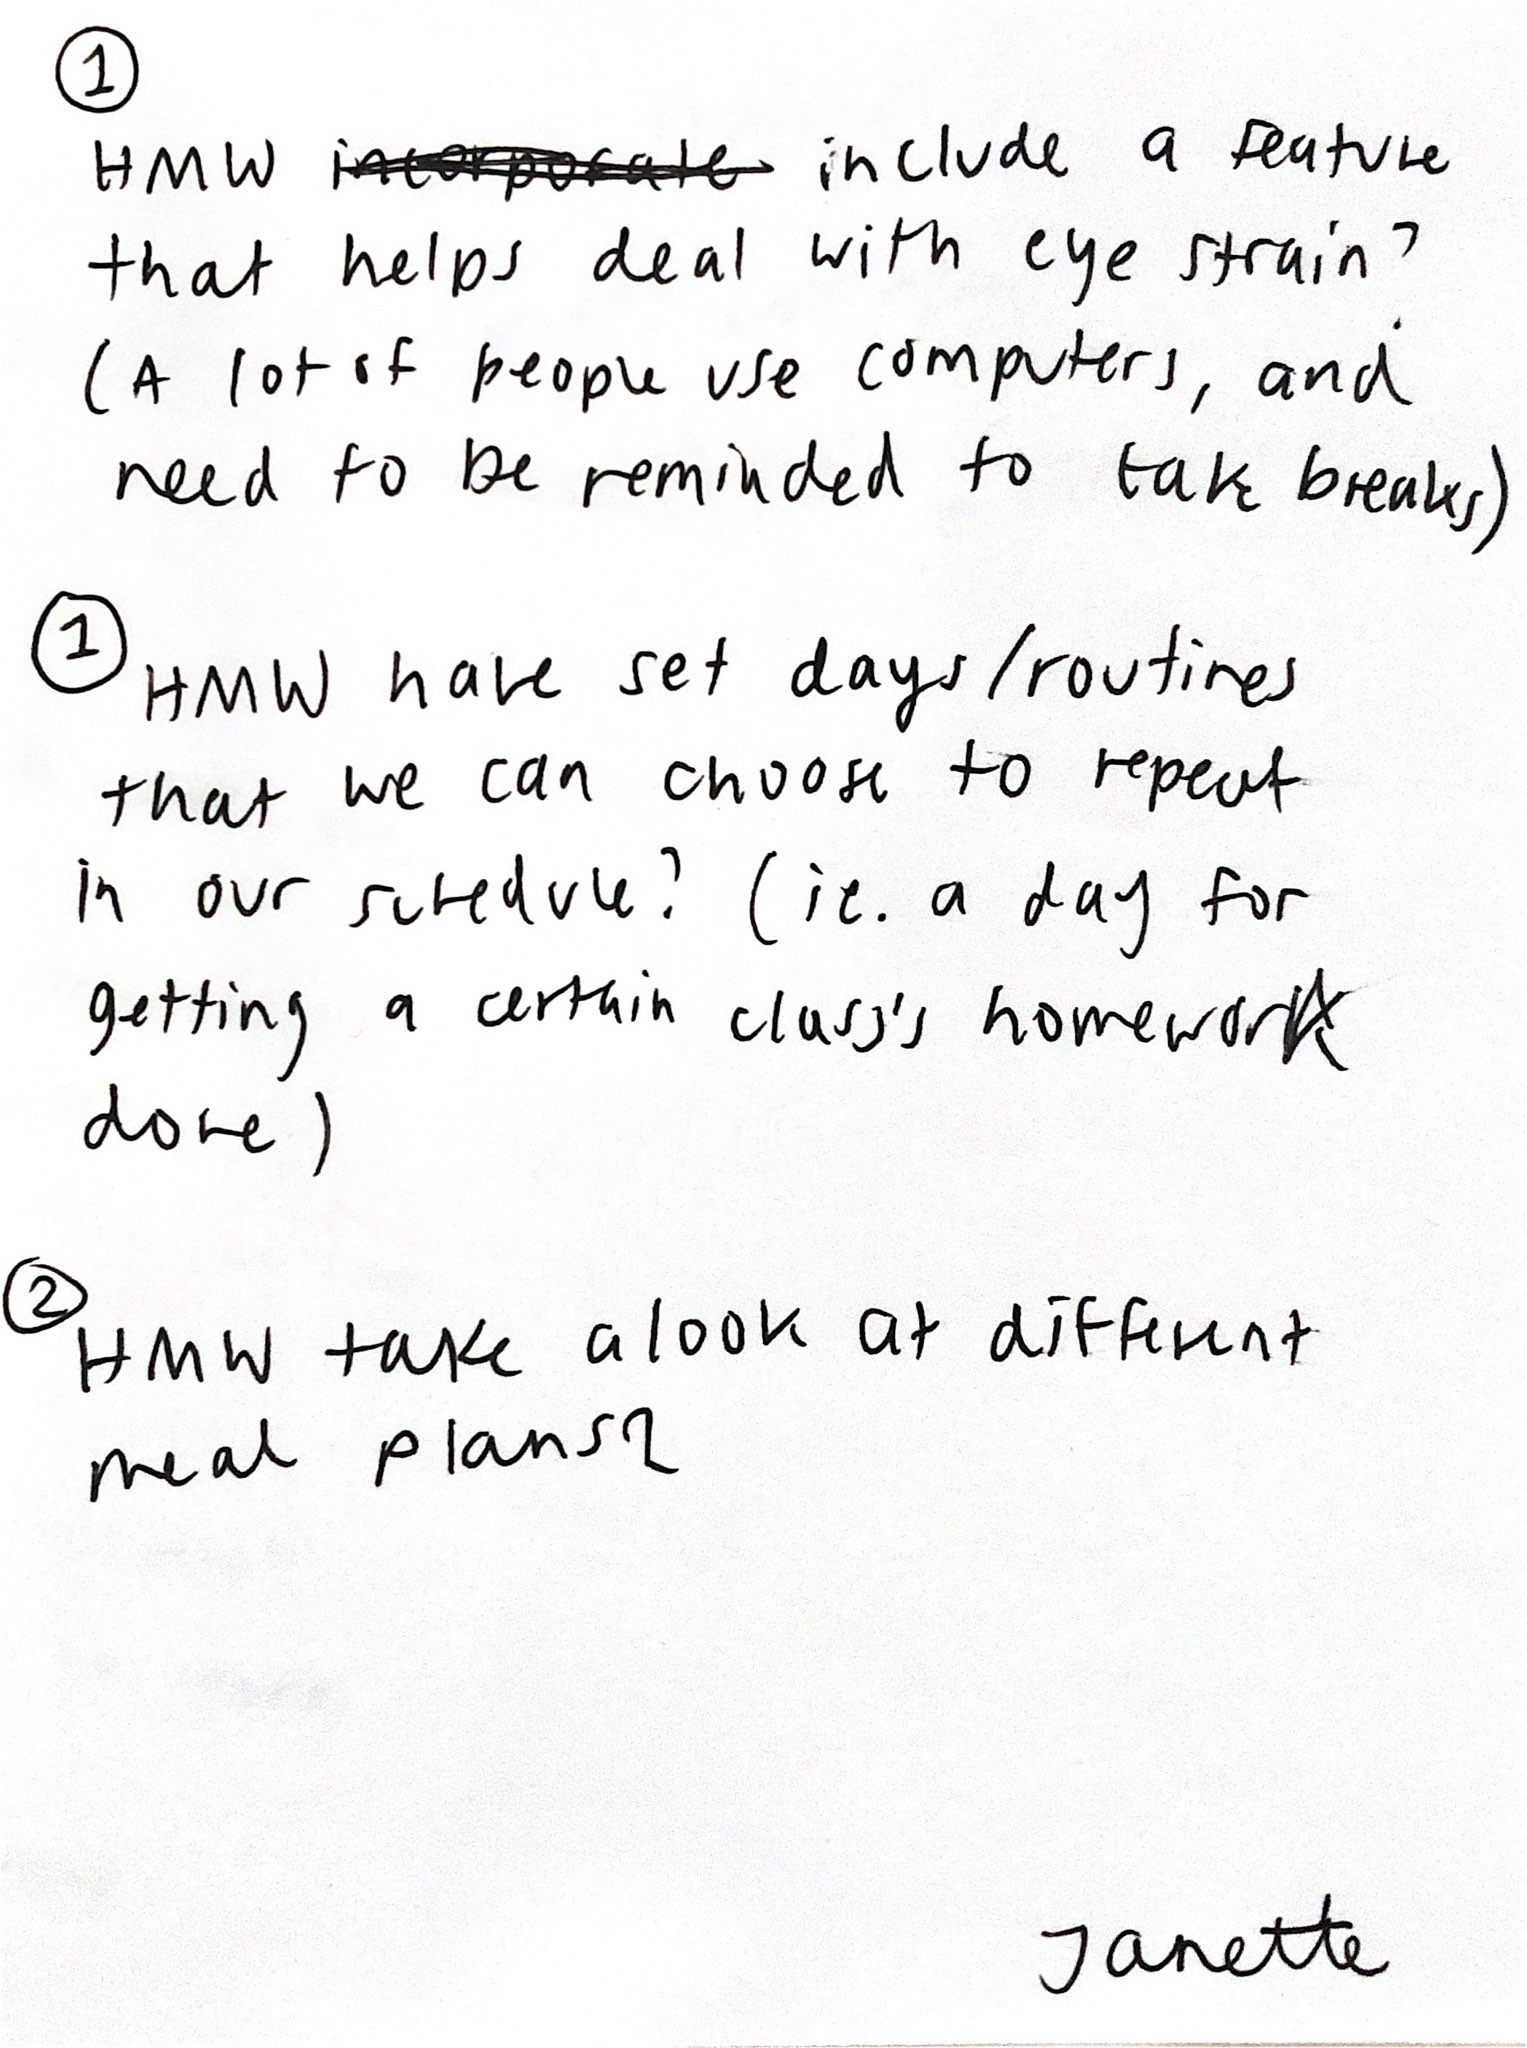 1
HMW incorporate include a feature
that helps deal with eye strain?
(A lot of people use computers, and
need to be reminded to take breaks)
1
HMW have set days/routines
that we can choose to repeat
in our schedule? (ie. a day for
getting a certain class's homework
done)
2
HMW take a look at different
meal plans?
Janette